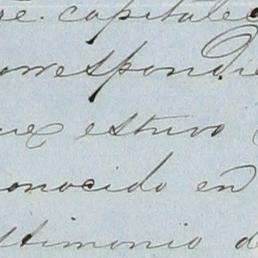 se. capitales
orrespondie
que estuvo
onocido en
stimonio d